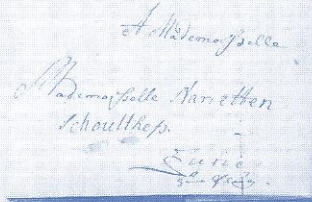 A Mademoiselle
Mademoiselle Nanetten
Schoulthess.
Zuric